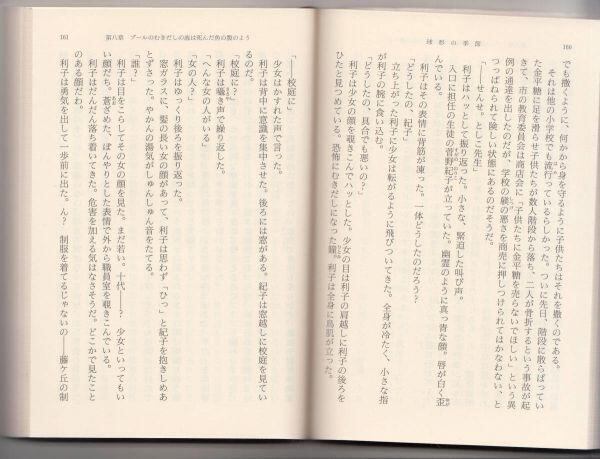 160
球形の季節
でも撒くように、何かから身を守るように子供たちはそれを撒くのである。
それは他の小学校でも流行っているらしかった。ついに先日、階段に散らばってい
た金平糖に足を滑らせ子供たちが数人階段から落ち、二人が骨折するという事故が起
きて、市の教育委員会は商店会に「子供たちに金平糖を売らないでほしい」という異
例の通達を出したのだが、学校の躾の悪さを商売に押しつけられてはかなわない、と
つっぱねられて険しい状態にあるのだそうだ。
「——せんせ。としこ先生」
利子はハッとして振り返った。小さな、緊迫した叫び声。
入口に担任の生徒の菅野紀子が立っていた。幽霊のように真っ青な顔。唇が白く歪
んでいる。
利子はその表情に背筋が凍った。一体どうしたのだろう?
「どうしたの、紀子」
立ち上がった利子に少女は転がるように飛びついてきた。全身が冷たく、小さな指
が利子の腕に食い込む。
「どうしたの、具合でも悪いの?」
利子は少女の顔を覗きこんでハッとした。少女の目は利子の肩越しに利子の後ろを
ひたと見つめている。恐怖にむきだしになった瞳。利子は全身に鳥肌が立った。
161
第八章 プールのむきだしの底は死んだ魚の腹のよう
「——校庭に」
少女はかすれた声で言った。
利子は背中に意識を集中させた。後ろには窓がある。紀子は窓越しに校庭を見てい
るのだ。
「校庭に?」
利子は囁き声で繰り返した。
「へんな女の人がいる」
「女の人?」
利子はゆっくり後ろを振り返った。
窓ガラスに、髪の長い女の顔があって、利子は思わず「ひっ」と紀子を抱きしめあ
とずさった。やかんの湯気がしゅんしゅん音をたてる。
「誰?」
利子は目をこらしてその女の顔を見た。まだ若い。十代——? 少女といってもい
い顔だち。蒼ざめた、ぼんやりとした表情で外から職員室を覗きこんでいる。
利子はだんだん落ち着いてきた。危害を加える気はなさそうだ。どこかで見たこと
のある顔だわ。
利子は勇気を出して一歩前に出た。ん? 制服を着てるじゃないの——藤ケ丘の制